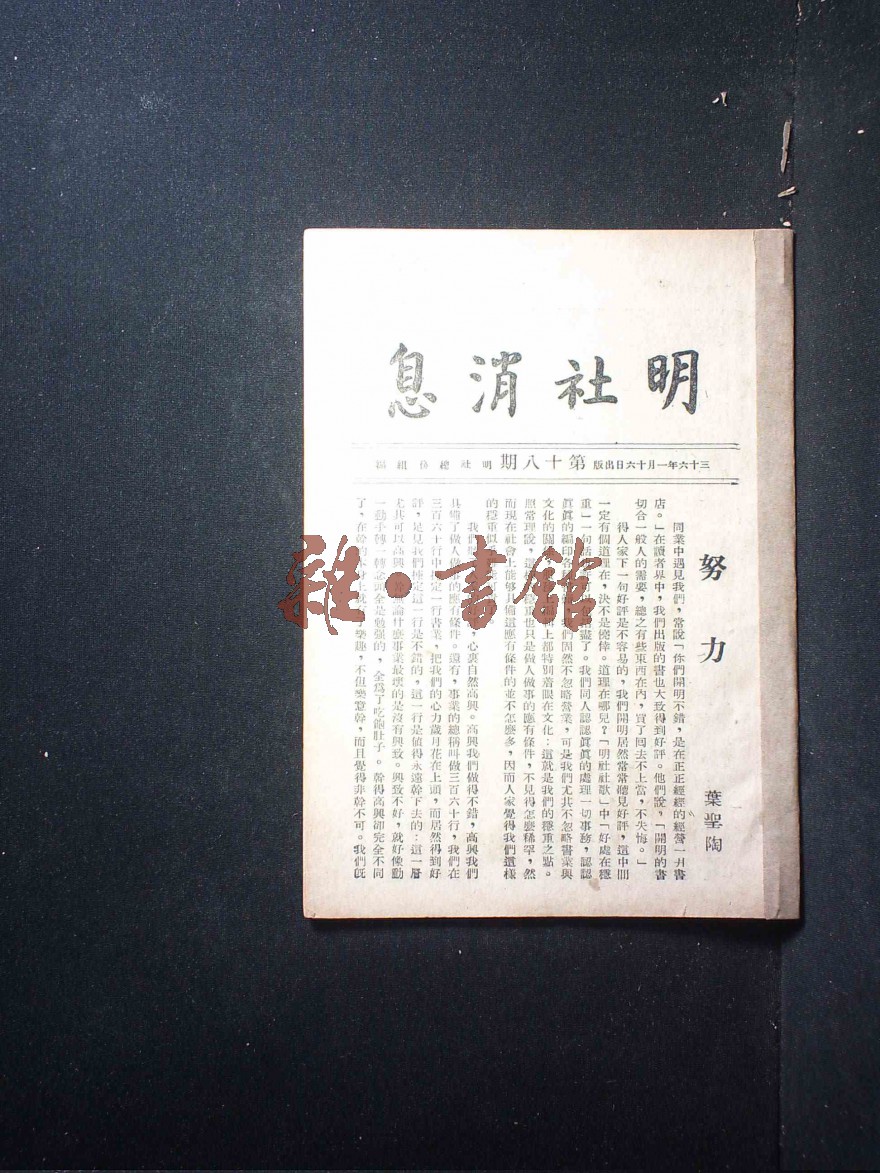 明社消息
三十六年一月十六日出版 第十八期 明社總務組編
努力
葉聖陶
同業中遇見我們，常說「你們開明不錯，是在正正經經的經營一爿書
店。」在讀者界中，我們出版的書也大致得到好評。他們說，「開明的書
切合一般人的需要，總之有些東西在內，買了回去不上當，不失悔。」
得人家下一句好評是不容易的，我們開明居然常常聽見好評，這中間
一定有個道理在，決不是僥倖。道理在哪兒？「明社社歌」中「好處在穩
重」一句話盡了。我們同人認認眞眞的處理一切事務，認認
眞眞的編印各我們固然不忽略營業，可是我們尤其不忽略書業與
文化的關上都特別着眼在文化：這就是我們的穩重之點。
照常理說，這重也只是做人做事的應有條件，不見得怎麼稀罕，然
而現在社會上能够具備這應有條件的並不怎麼多，因而人家覺得我們這樣
的穩重似
我們心裏自然高興。高興我們做得不錯，高興我們
具備了做人事的應有條件。還有，事業的總稱叫做三百六十行，我們在
三百六十行中揀定一行書業，把我們的心力歲月花在上頭，而居然得到好
評，足見我們揀定這一行是不錯的，這一行是值得永遠幹下去的：這一層
尤其可以高興。論什麼事業最壞的是沒有興致。興致不好，就好像動
一動手轉一轉念頭全是勉強的，全爲了吃飽肚子。幹得高興卻完全不同
了，在幹的樂趣，不但樂意幹，而且覺得非幹不可。我們旣
雜·書館